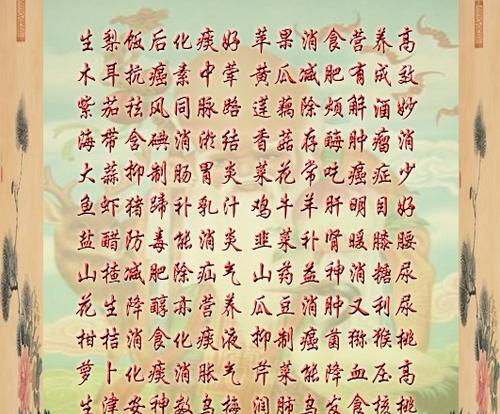 生梨饭后化痰好 苹果消食营养高
木耳抗癌素中荤 黄瓜减肥有成效
紫茄祛风同脉络 莲藕除烦解酒妙
海带含碘消淤结 香菇存酶肿瘤消
大蒜抑制肠胃炎 菜花常吃癌症少
鱼虾猪蹄补乳汁 鸡牛羊肝明目好
盐醋防毒能消炎 韭菜补肾暖膝腰
山楂减肥除疝气 山药益神消糖尿
花生降醇亦营养 瓜豆消肿又利尿
柑桔消食化痰液 抑制癌菌猕猴桃
萝卜化痰消胀气 芹菜能降血压高
生津安神数乌梅 润肺乌发食核桃